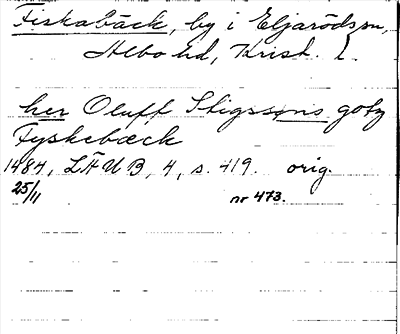 Fiskabäck, by i Eljarödssn,
Albo hd, Krist. l.
her Oluff Stigssøns gotz
Fyskebæck
1484, LÄUB, 4, s. 419. orig.
25/11 nr 473.